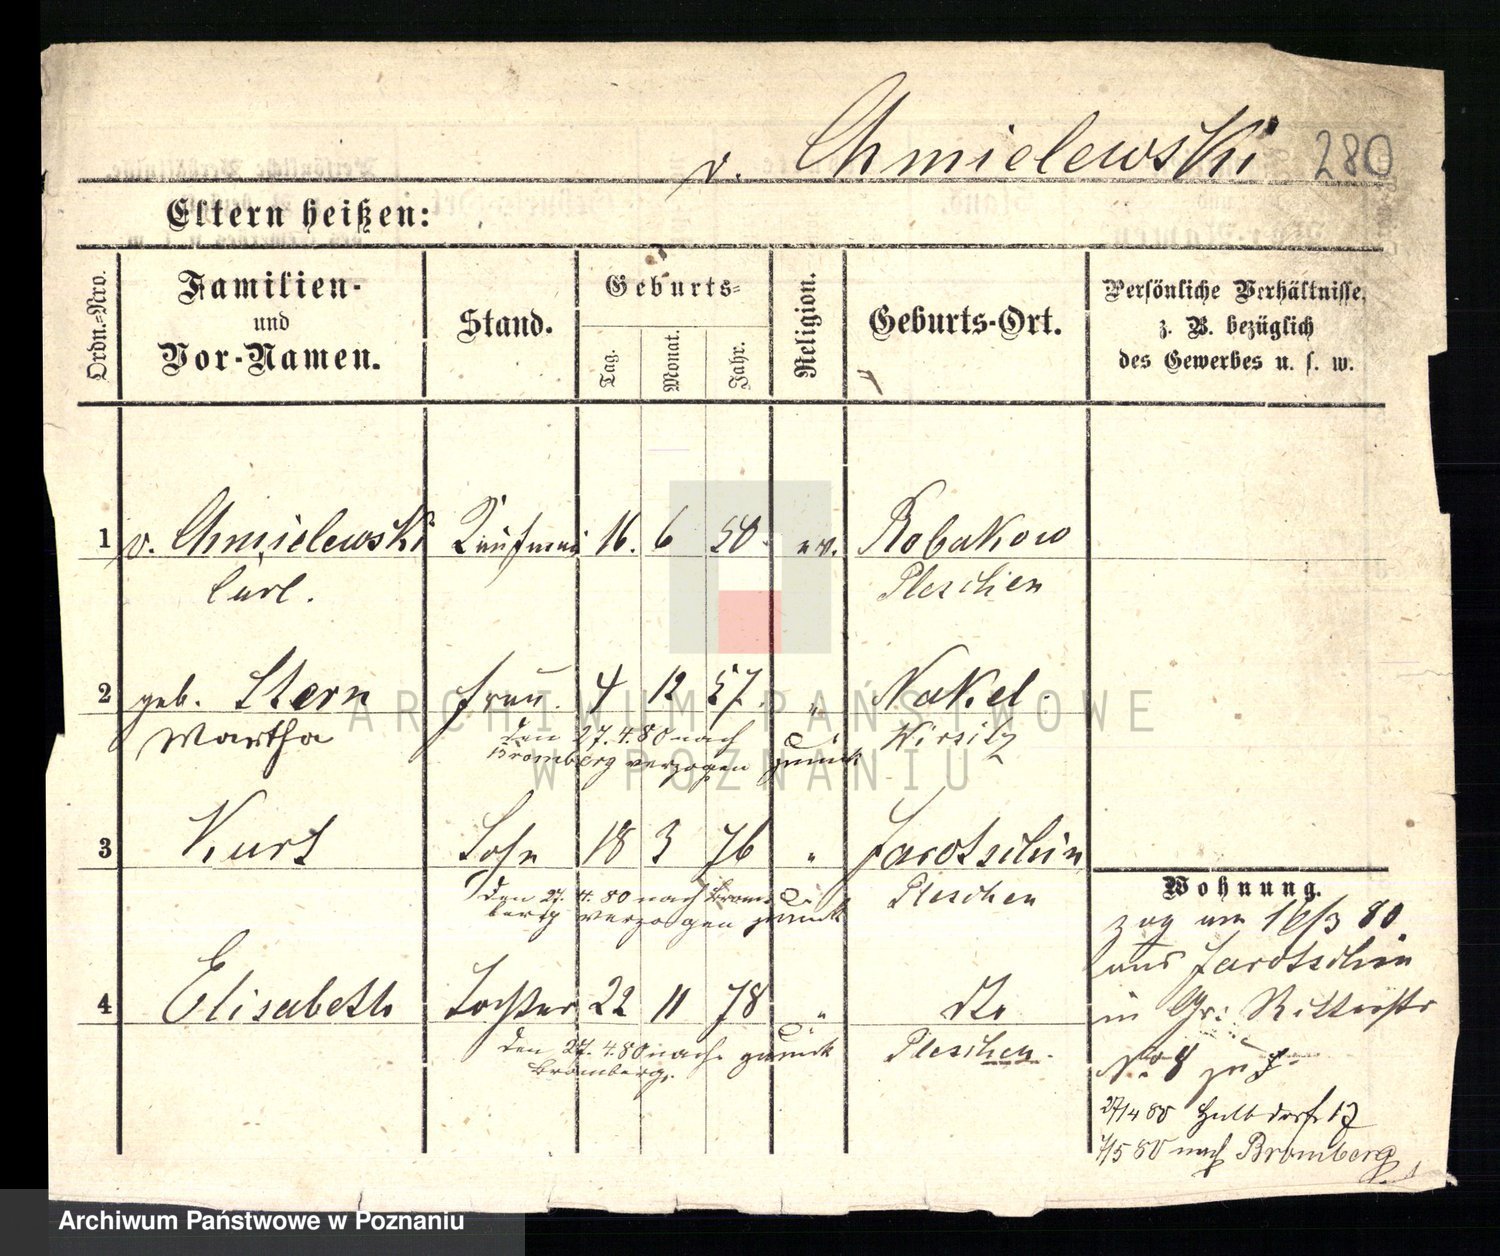 v. Chmielewski 280
Eltern heißen:
Ordn.-Nro.
Familien-
und
Vor-Namen.
Stand.
Geburts-
Tag.
Monat.
Jahr.
Religion.
Geburts-Ort.
Persönliche Verhältnisse,
z. B. bezüglich
des Gewerbes u. s. w.
1 v. Chmielewski Kaufmann 16. 6 50. ev. Robakow
Carl. Pleschen
2 geb. Stern Frau. 4 12 57. " Nakel.
Martha den 27.4.80 nach Wirsitz
Bromberg verzogen zurück
3 Kurt Sohn 18 3 76 " Jarotschin
den 27. 4. 80 nach Brom- Pleschen
berg verzogen zurück
4 Elisabeth Tochter 22 11 78 " dto
den 27. 4. 80 nach zurück Pleschen.
Bromberg.
Wohnung.
zog am 16/3 80.
aus Jarotschin
in Gr: Ritterstr
No 8 zu
27/4 80 Halbdorfst 17
7/5 80 nach Bromberg
ARCHIWUM PAŃSTWOWE
W POZNANIU
Archiwum Państwowe w Poznaniu